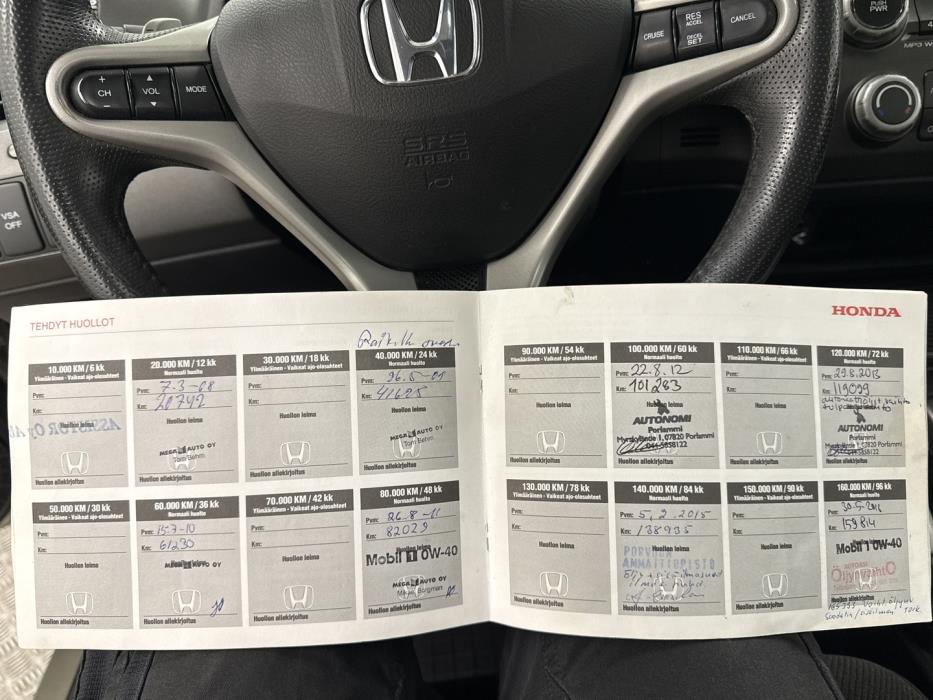 PUSH
PWR
CRUISE
RES
ACCEL
DECEL
SET
CANCEL
+
CH
-
VOL
MODE
SRS
AIRBAG
VSA
OFF
TEHDYT HUOLLOT
HONDA
10.000 KM / 6 kk
Ylimääräinen - Vaikeat ajo-olosuhteet
Pvm:
Km:
Huollon leima
Huollon allekirjoitus
20.000 KM / 12 kk
Normaali huolto
Pvm: 7-3-08
Km: 20742
MEGA AUTO OY
Tom Behm
Huollon allekirjoitus
30.000 KM / 18 kk
Ylimääräinen - Vaikeat ajo-olosuhteet
Pvm:
Km:
Huollon leima
Huollon allekirjoitus
40.000 KM / 24 kk
Normaali huolto
Pvm:
Km:
Huollon leima
MEGA AUTO OY
Tom Behm
Huollon allekirjoitus
50.000 KM / 30 kk
Ylimääräinen - Vaikeat ajo-olosuhteet
Pvm:
Km:
Huollon leima
Huollon allekirjoitus
60.000 KM / 36 kk
Normaali huolto
Pvm: 15-7-10
Km: 61230
MEGA AUTO OY
Huollon allekirjoitus
70.000 KM / 42 kk
Ylimääräinen - Vaikeat ajo-olosuhteet
Pvm:
Km:
Huollon leima
Huollon allekirjoitus
80.000 KM / 48 kk
Normaali huolto
Pvm: 26-8-11
Km: 82029
Mobil 1 0W-40
MEGA AUTO OY
Mikael Borgman
Huollon allekirjoitus
90.000 KM / 54 kk
Ylimääräinen - Vaikeat ajo-olosuhteet
Pvm:
Km:
Huollon leima
Huollon allekirjoitus
100.000 KM / 60 kk
Normaali huolto
Pvm: 22.8.12
Km: 101283
Huollon leima
AUTONOMI
Porlammi
07820 Porlammi
Huollon allekirjoitus
110.000 KM / 66 kk
Ylimääräinen - Vaikeat ajo-olosuhteet
Pvm:
Km:
Huollon leima
Huollon allekirjoitus
120.000 KM / 72 kk
Normaali huolto
Pvm: 29.8.2013
Km: 119099
AUTONOMI
Porlammi
07820 Porlammi
Huollon allekirjoitus
130.000 KM / 78 kk
Ylimääräinen - Vaikeat ajo-olosuhteet
Pvm:
Km:
Huollon leima
Huollon allekirjoitus
140.000 KM / 84 kk
Normaali huolto
Pvm: 5.2.2015
Km: 138935
Huollon leima
PORVOON
AMMATTIOPISTO
Huollon allekirjoitus
150.000 KM / 90 kk
Ylimääräinen - Vaikeat ajo-olosuhteet
Pvm:
Km:
Huollon leima
Huollon allekirjoitus
160.000 KM / 96 kk
Normaali huolto
Pvm:
Km: 159814
Mobil 1 0W-40
Huollon allekirjoitus